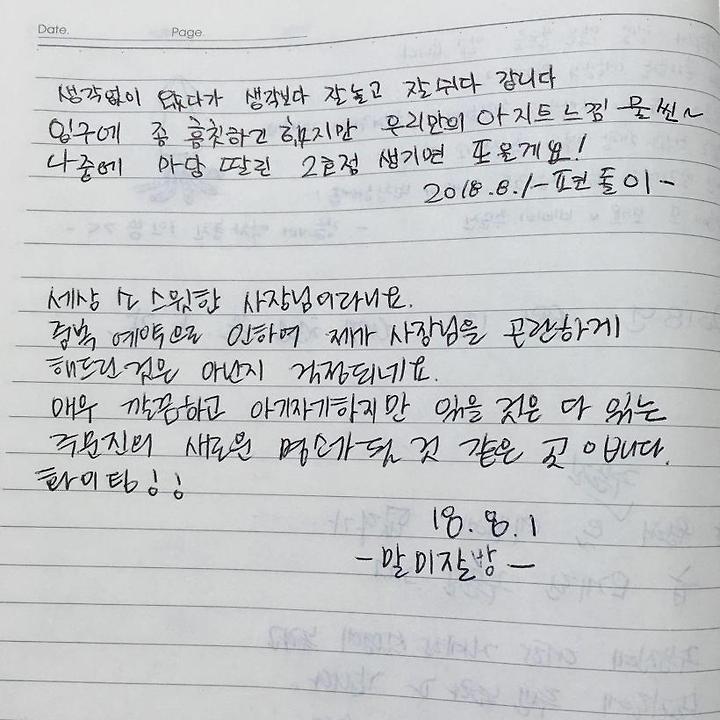 Date. Page.
생각없이 왔다가 생각보다 잘놀고 잘쉬다 갑니다
입구에 좀 흠칫하긴 했지만 우리만의 아지트느낌 물씬~
나중에 마당 딸린 2호점 생기면 또올게요!
2018.8.1 - 포천돌이 -
세상 소스윗한 사장님이라니요.
중복 예약으로 인하여 제가 사장님을 곤란하게
해드린 것은 아닌지 걱정되네요.
매우 깔끔하고 아기자기하지만 있을 것은 다 있는
주문진의 새로운 명소가 될 것 같은 곳 입니다.
화이팅!!
18.8.1
- 말미잘방 -